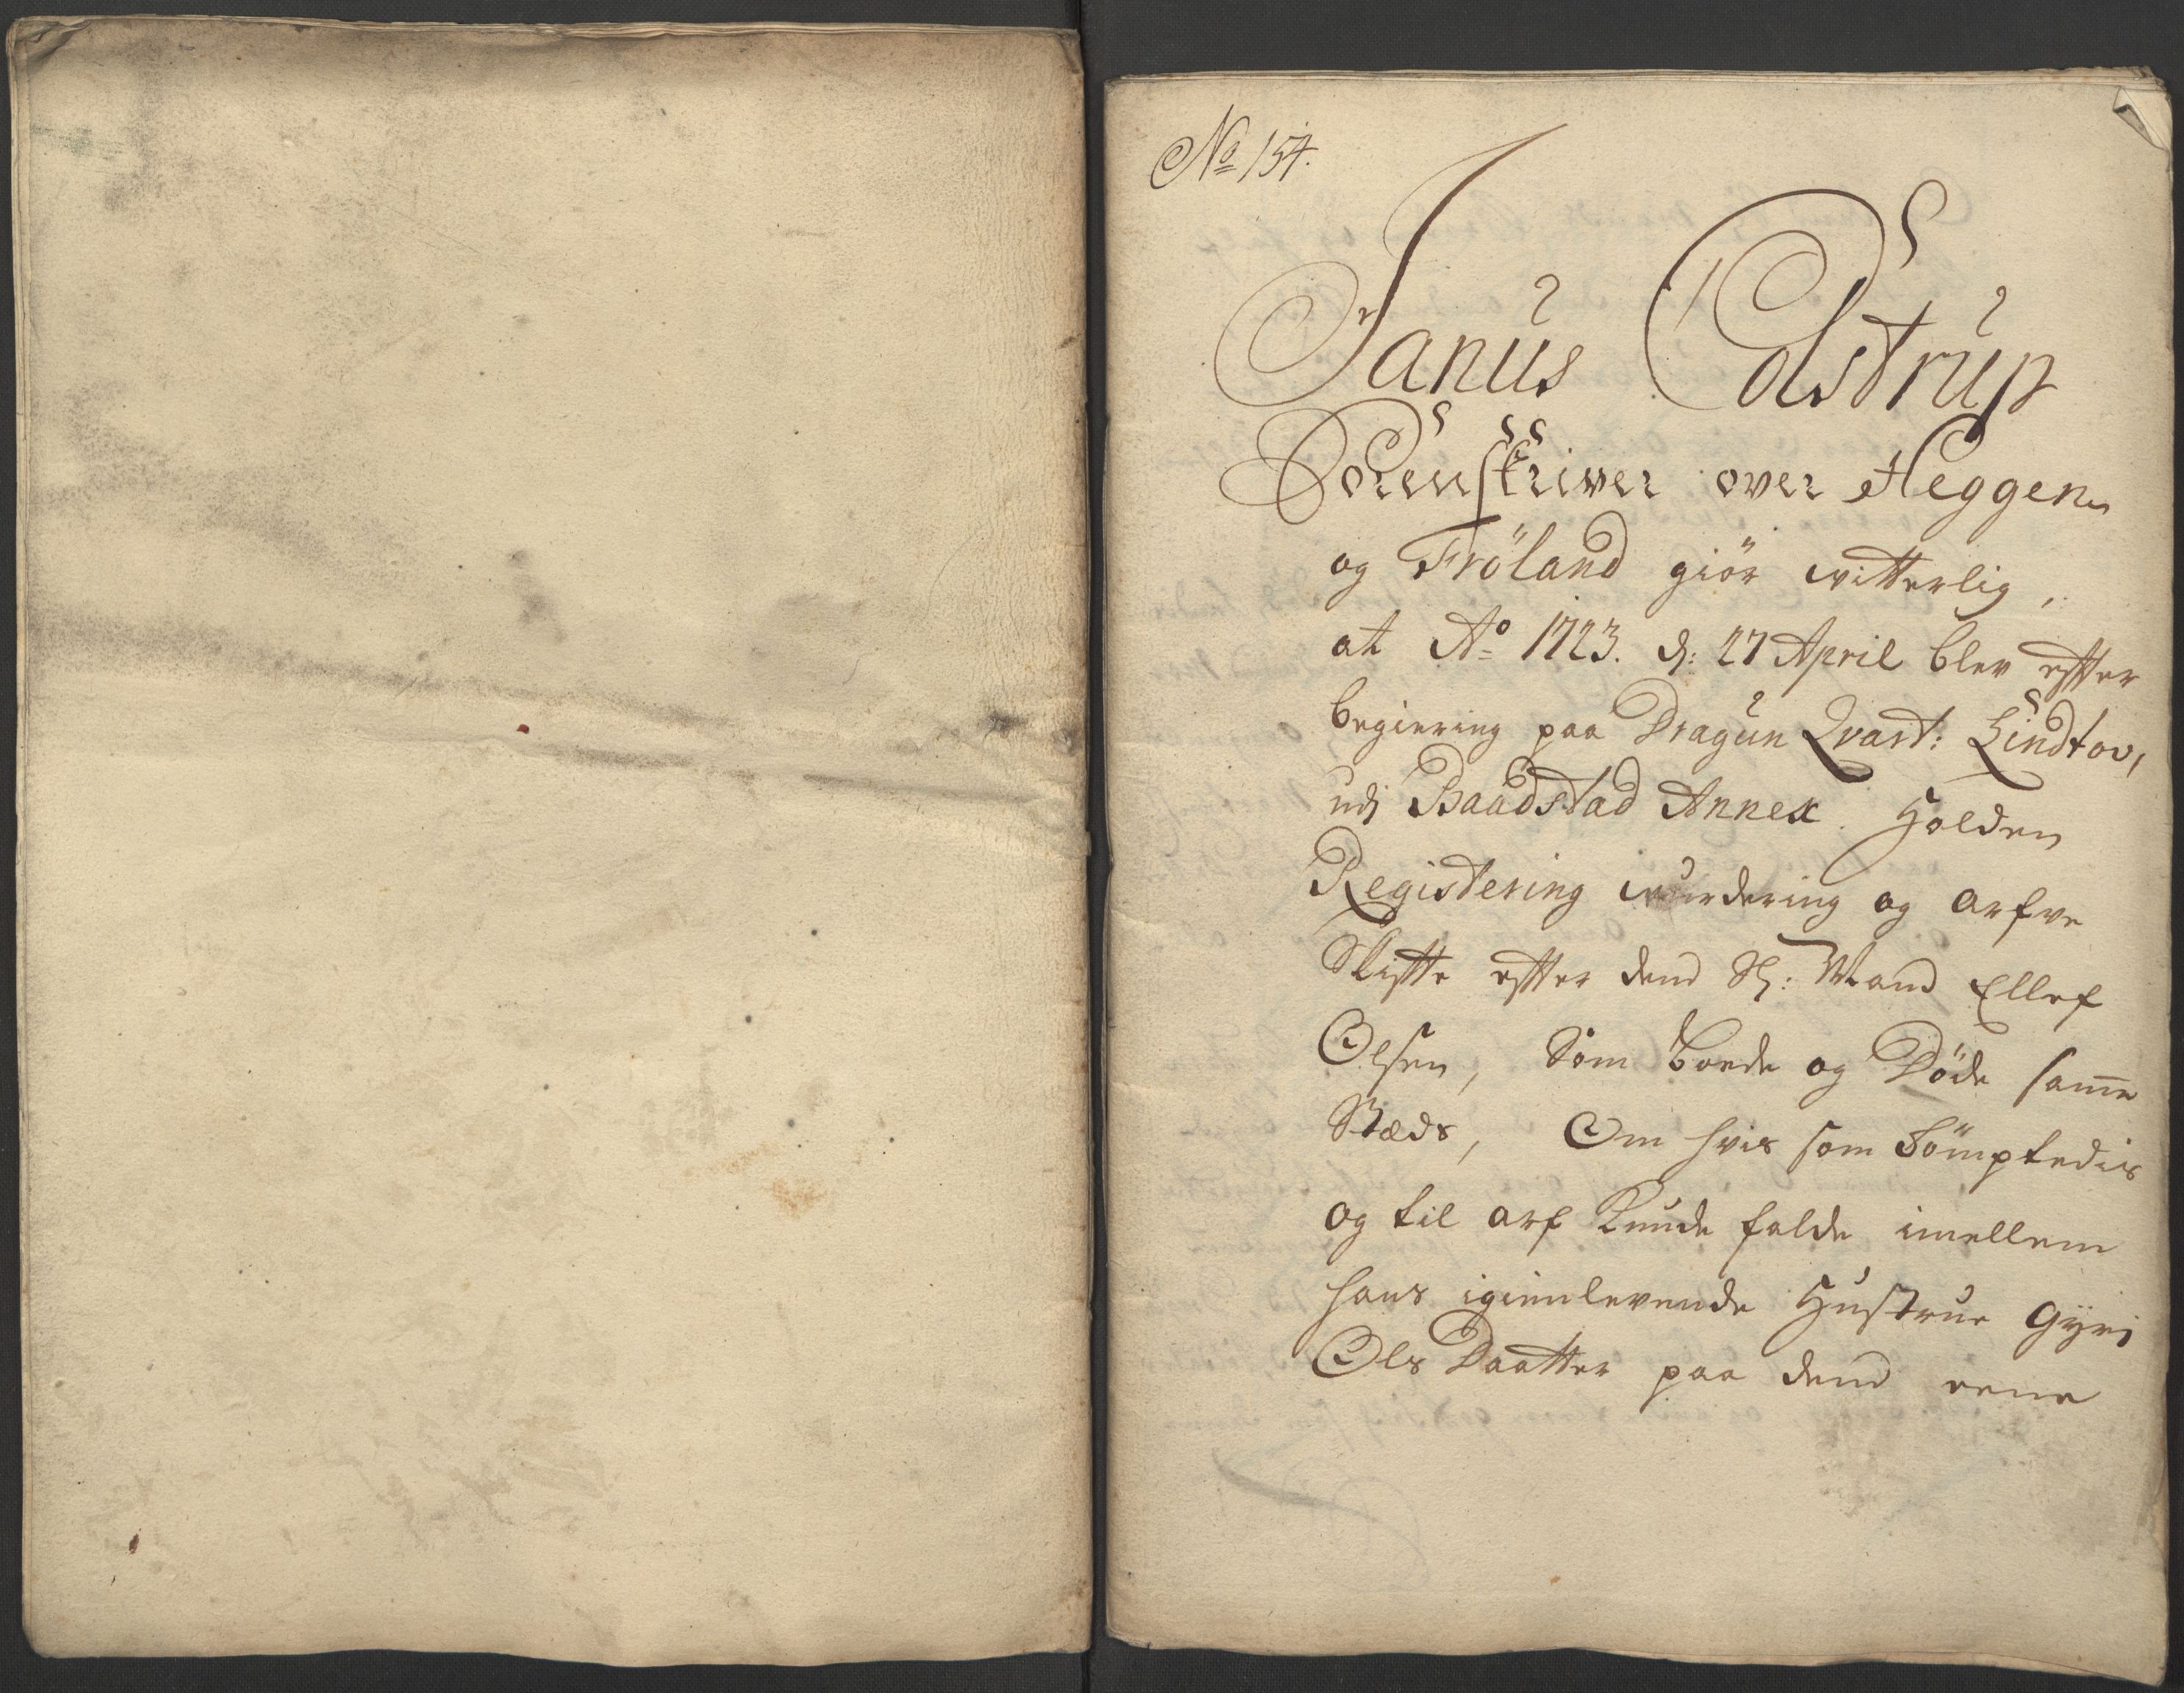 No 154.
Janus Colstrup
Sorenskriver over Heggen
og Fröland giör witterlig,
at Ao 1723. d: 27 April blev effter
begiering paa Dragun Qvart: Lindtov,
udj Baadstad Annex. Holden
Registering wurdering og arfve
Skiffte effter dend Sl: Mand Ellef
Olsen, Som boede og Döde samme
Stæds, Om hvis som Sömptedis
og til arf Kunde falde imellem
hans igienlevende Hustrue Gyri
Ols Daatter paa dend eene